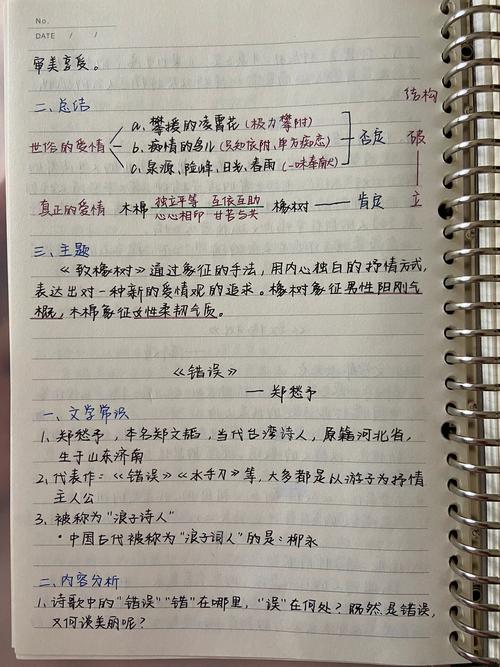 No.
DATE / /
审美享受。
二、总结
结构
世俗的爱情
a. 攀援的凌霄花(极力攀附)
b. 痴情的鸟儿(只知依附,单方痴恋)
c. 泉源、险峰、日光、春雨(一味奉献)
否定 破
真正的爱情 木棉 独立平等 互依互助 橡树 —— 肯定 立
心心相印 甘苦与共
三、主题
《致橡树》通过象征的手法,用内心独白的抒情方式,
表达出对一种新的爱情观的追求。橡树象征男性阳刚气
概,木棉象征女性柔韧气质。
《错误》
— 郑愁予
一、文学常识
1. 郑愁予,本名郑文韬,当代台湾诗人,原籍河北省,
生于山东济南
2. 代表作:《错误》《水手刀》等,大多都是以游子为抒情
主人公
3. 被称为"浪子诗人"
·中国古代被称为"浪子词人"的是:柳永
二、内容分析
1. 诗歌中的"错误""错"在哪里,"误"在何处?既然是错误,
又何谈美丽呢?